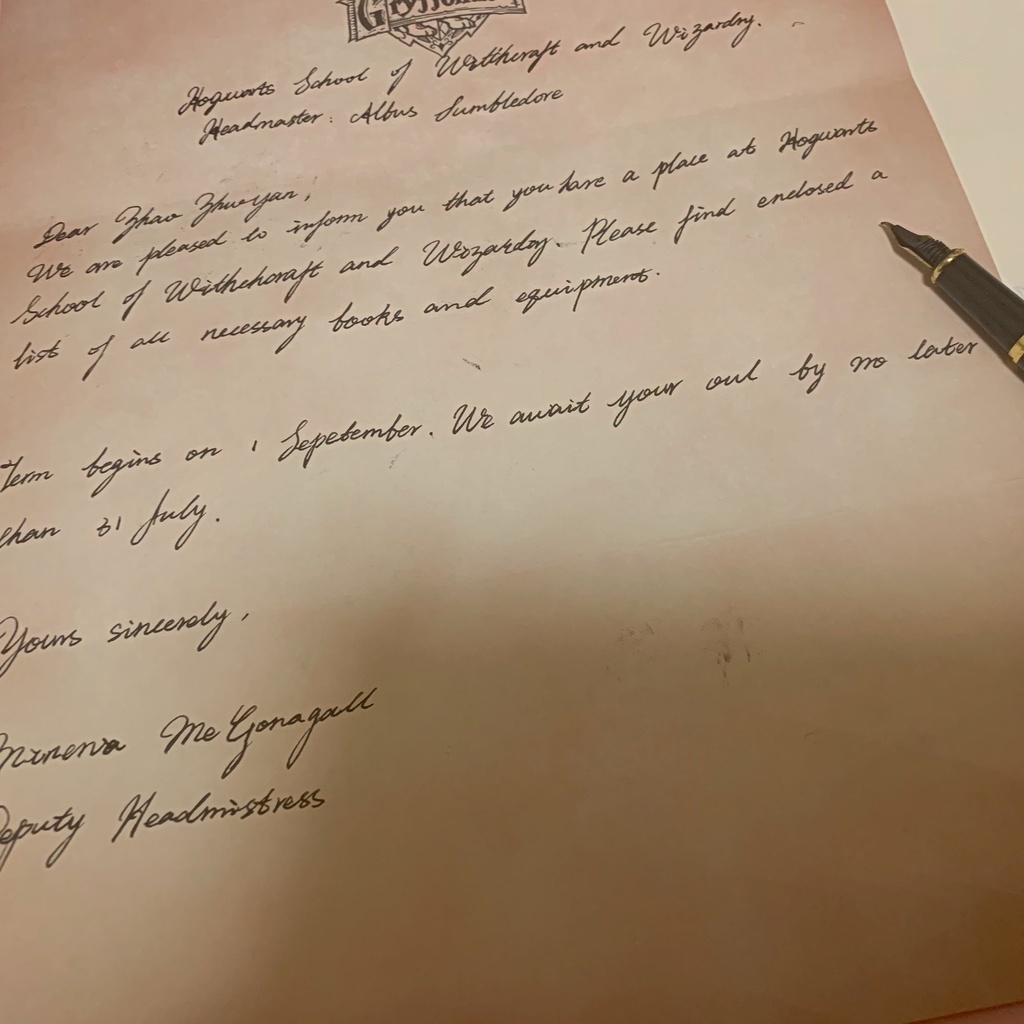 Gryffindor
Hogwarts School of Witthcraft and Wizardry.
Headmaster: Albus Dumbledore
Dear Zhao Zhuoyan,
We are pleased to inform you that you have a place at Hogwarts
School of Withchcraft and Wizardry. Please find enclosed a
list of all necessary books and equipment.
Term begins on 1 Sepetember. We await your owl by no later
than 31 July.
Yours sincerely,
Minerva McGonagall
Deputy Headmistress